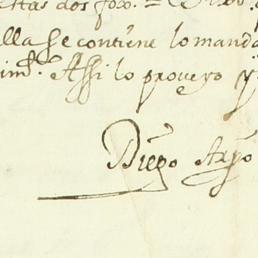 dos fox.
ella se contiene lo manda
im.º Assi lo proveyo y
Diego